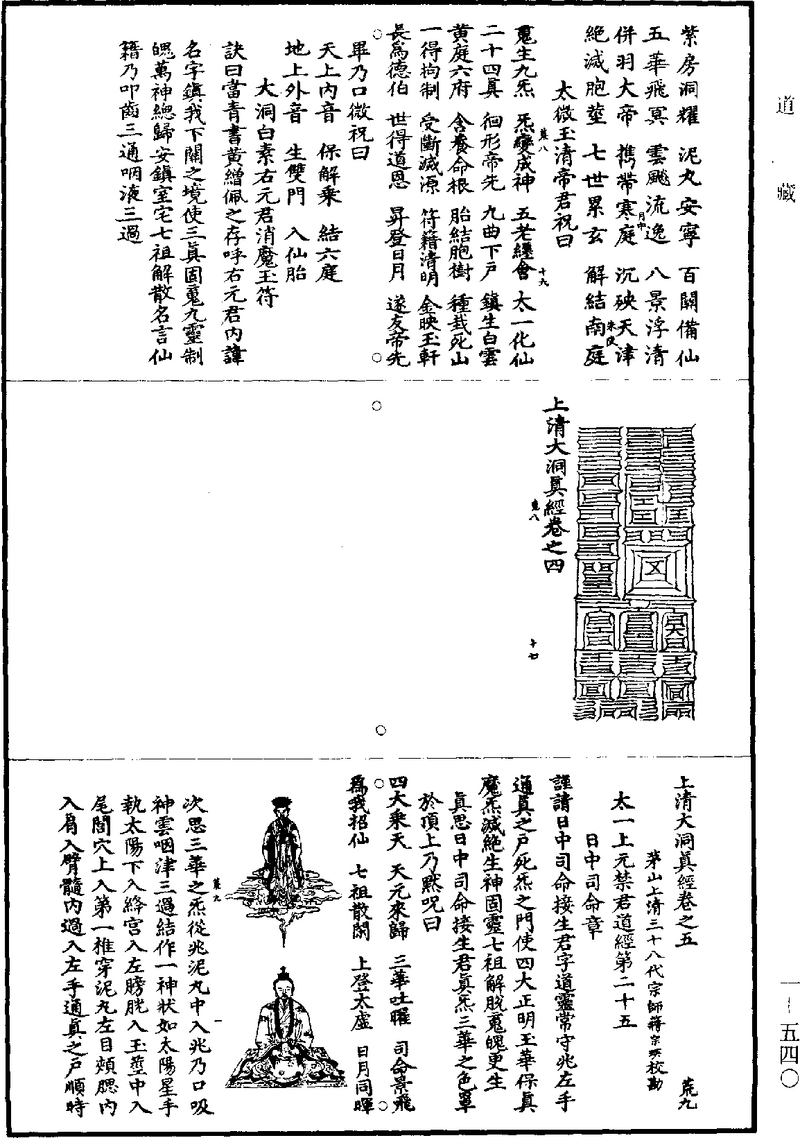 道藏
紫房洞耀　泥丸安寧　百關備仙
五華飛冥　雲飈流逸　八景浮清
併羽大帝　携帶寒庭　沉殃天津
絕滅胞荄　七世累玄　解結南庭
太微玉清帝君祝曰
䰟生九炁　炁變成神　五老經會　太一化仙
二十四真　徊形帝先　九曲下戶　鎮生白雲
黃庭六府　含養命根　胎結胞樹　種栽死山
一得拘制　受斷滅源　符籍清明　金映玉軒
長為德伯　世得道恩　昇登日月　遂友帝先
畢乃口微祝曰
天上內音　保解乘　結六庭
地上外音　生雙門　入仙胎
大洞白素右元君消魔玉符
訣曰當青書黃繒佩之存呼右元君內諱
名字鎮我下關之境使三真固䰟九靈制
魄萬神總歸安鎮室宅七祖解散名言仙
籍乃叩齒三通咽液三過
上清大洞真經卷之四
上清大洞真經卷之五
荒九
茅山上清三十八代宗師蔣宗瑛校勘
太一上元禁君道經第二十五
日中司命章
謹請日中司命接生君字道靈常守兆左手
通真之戶死炁之門使四大正明玉華保真
魔炁滅絕生神固靈七祖解脫䰟魄更生
真思日中司命接生君真炁三華之色罩
於頂上乃默呪曰
四大乘天　天元來歸　三華吐曜　司命景飛
為我招仙　七祖散關　上登太虛　日月同暉
次思三華之炁從兆泥丸中入兆乃口吸
神雲咽津三過結作一神狀如太陽星手
執太陽下入絳宮入左膀胱入玉莖中入
尾閭穴上入第一椎穿泥丸左目頰腮內
入肩入臂髓內過入左手通真之戶順時
一—五四〇